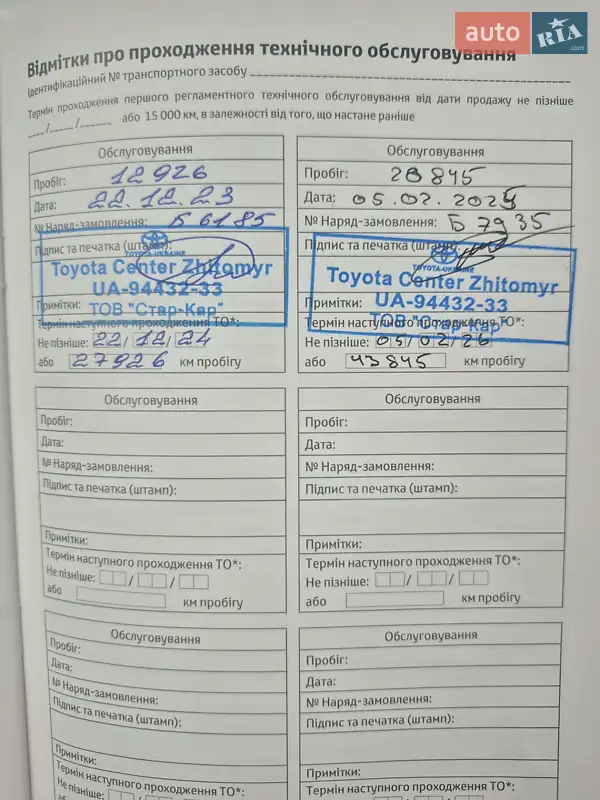 auto RIA .com
Відмітки про проходження технічного обслуговування
Ідентифікаційний № транспортного засобу
Термін проходження першого регламентного технічного обслуговування від дати продажу не пізніше
__/__/__ або 15 000 км, в залежності від того, що настане раніше
Обслуговування
Пробіг: 12926
Дата: 22.12.23
№ Наряд-замовлення: Б6185
Підпис та печатка (штамп):
TOYOTA-UKRAINE
Toyota Center Zhitomyr
UA-94432-33
Примітки: ТОВ "Стар-Кар"
Термін наступного проходження ТО*:
Не пізніше: 22/12/24
або 27926 км пробігу
Обслуговування
Пробіг: 28845
Дата: 05.02.2025
№ Наряд-замовлення: Б7935
Підпис та печатка (штамп):
TOYOTA-UKRAINE
Toyota Center Zhitomyr
Примітки: UA-94432-33
ТОВ "Стар-Кар"
Термін наступного проходження ТО*:
Не пізніше: 05/02/26
або 43845 км пробігу
Обслуговування
Пробіг:
Дата:
№ Наряд-замовлення:
Підпис та печатка (штамп):
Примітки:
Термін наступного проходження ТО*:
Не пізніше: / /
або км пробігу
Обслуговування
Пробіг:
Дата:
№ Наряд-замовлення:
Підпис та печатка (штамп):
Примітки:
Термін наступного проходження ТО*:
Не пізніше: / /
або км пробігу
Обслуговування
Пробіг:
Дата:
№ Наряд-замовлення:
Підпис та печатка (штамп):
Примітки:
Термін наступного проходження ТО*:
Не пізніше: / /
Обслуговування
Пробіг:
Дата:
№ Наряд-замовлення:
Підпис та печатка (штамп):
Примітки:
Термін наступного проходження ТО*:
Не пізніше: / /